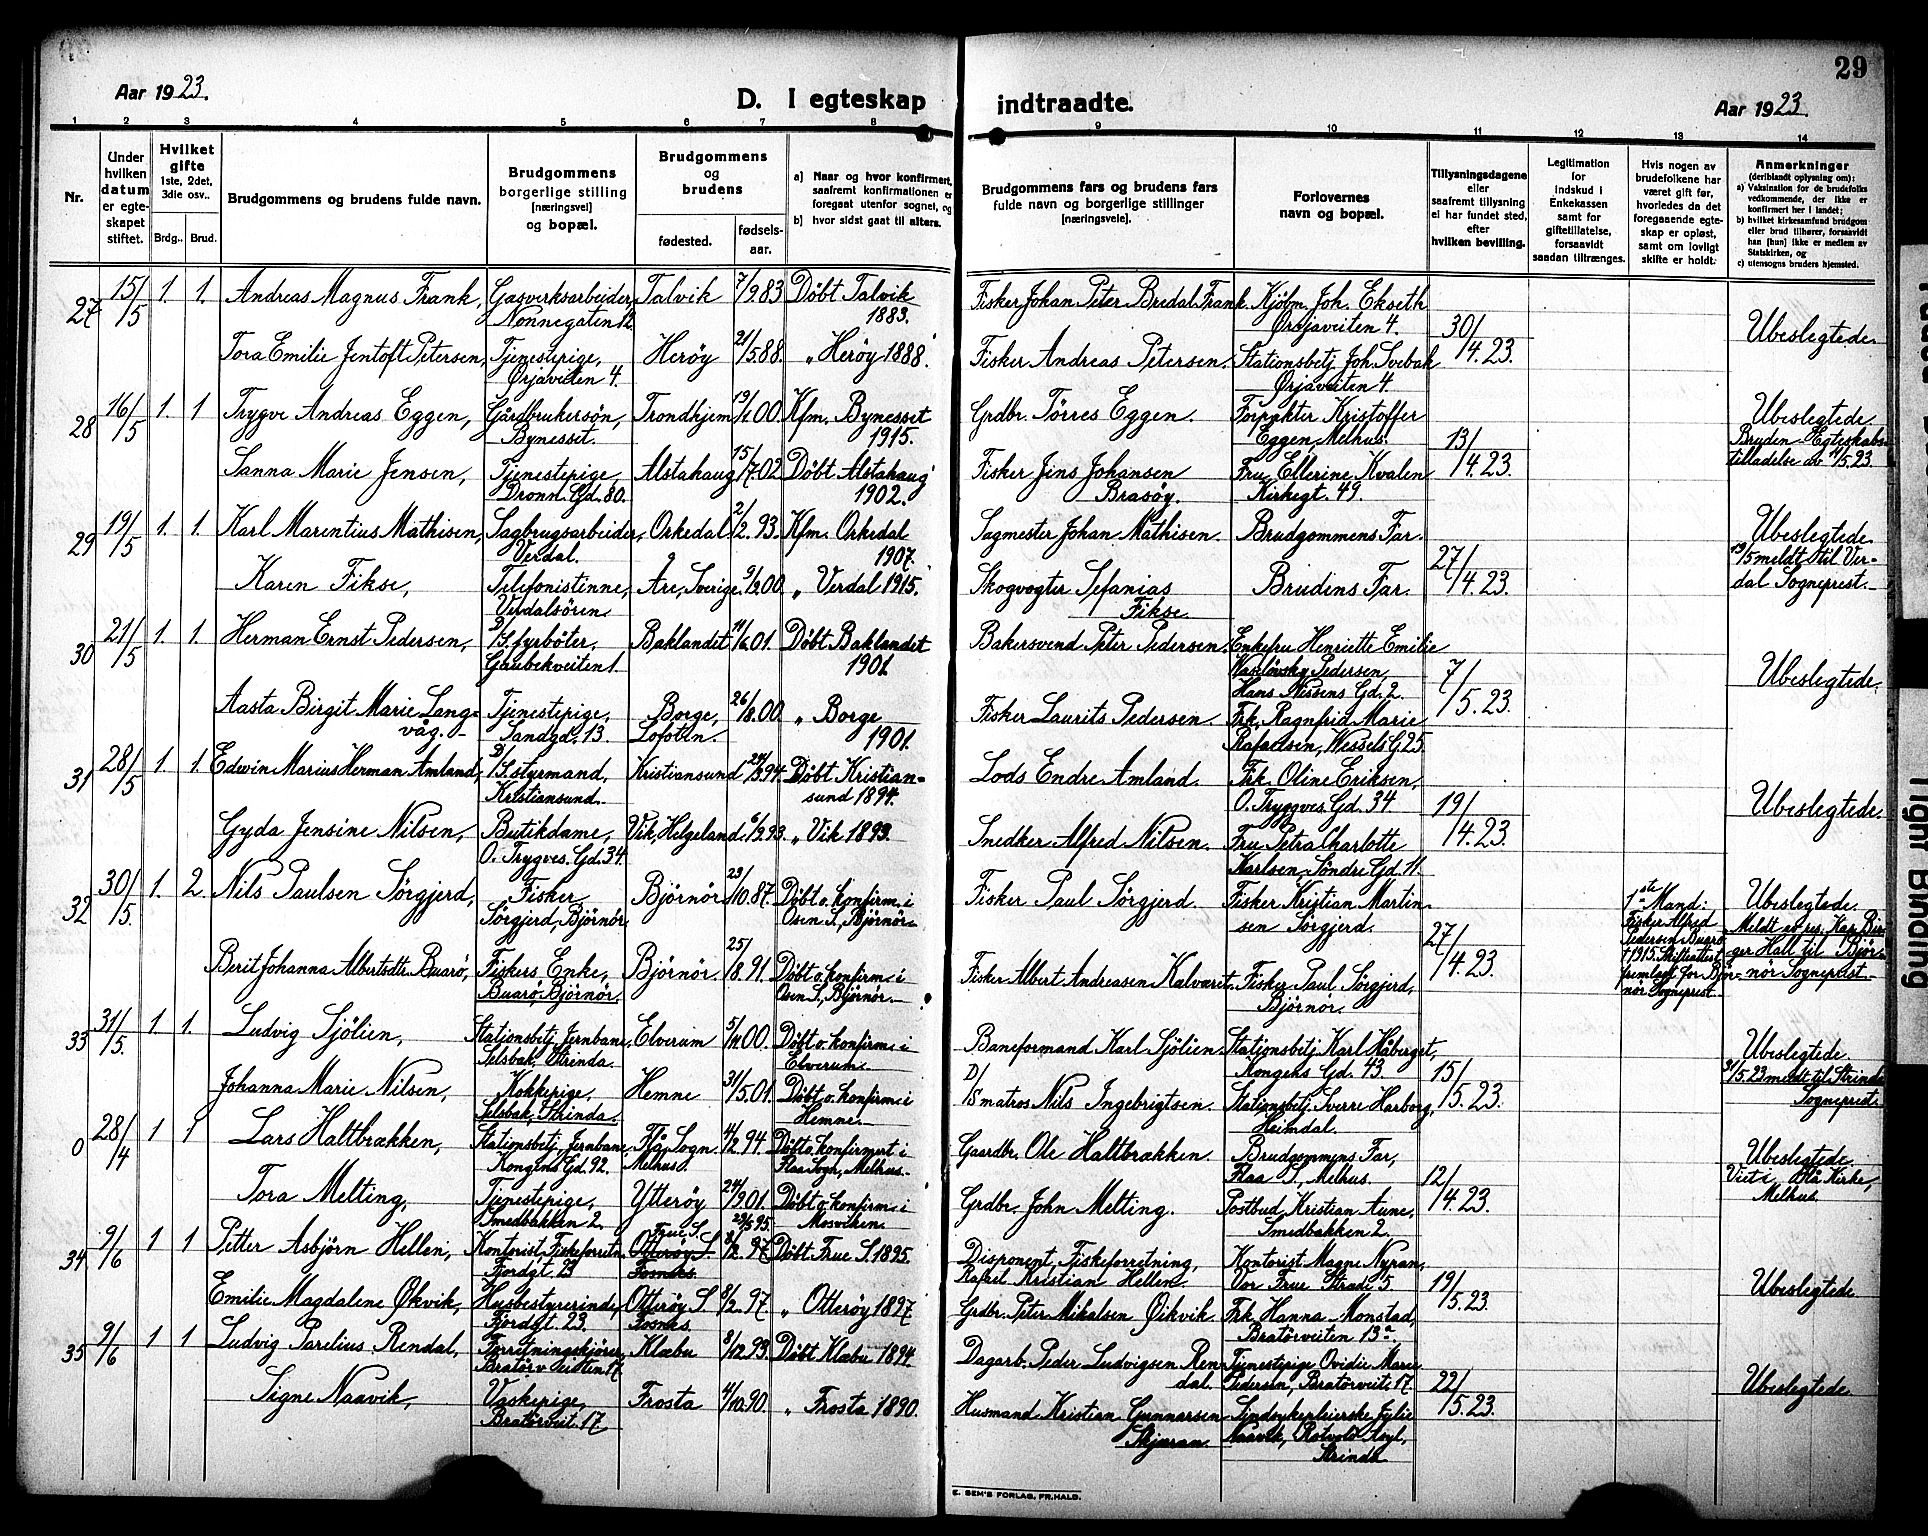 29
Aar 1923.
D. I egteskap indtraadte.
Aar 1923.
1 2 3 4 5 6 7 8 9 10 11 12 13 14
Nr.
Under hvilken datum er egteskapet stiftet.
Hvilket gifte 1ste, 2det, 3die osv..
Brdg.. Brud.
Brudgommens og brudens fulde navn.
Brudgommens borgerlige stilling [næringsvei] og bopæl.
Brudgommens og brudens
fødested.
fødsels-aar.
a) Naar og hvor konfirmert, saafremt konfirmationen er foregaat utenfor sognet, og
b) hvor sidst gaat til alters.
Brudgommens fars og brudens fars fulde navn og borgerlige stillinger [næringsveie].
Forlovernes navn og bopæl.
Tillysningsdagene eller saafremt tillysning ei har fundet sted, efter hvilken bevilling.
Legitimation for indskud i Enkekassen samt for giftetillatelse, forsaavidt saadan tiltrænges.
Hvis nogen av brudefolkene har været gift før, hvorledes da det foregaaende egteskap er opløst, samt om lovligt skifte er holdt.
Anmerkninger (deriblandt oplysning om):
a) Vaksination for de brudefolks vedkommende, der ikke er konfirmert her i landet;
b) hvilket kirkesamfund brudgom eller brud tilhører, forsaavidt han [hun] ikke er medlem av Statskirken, og
c) utensogns bruders hjemsted.
27 15/5 1. 1. Andreas Magnus Frank, Gasverksarbeider, Nonnegaten 12 Talvik 7/9.83 Døbt Talvik 1883. Fisker Johan Peter Bredal Frank Kjöbm. Joh. Ekseth Ørjaveiten 4. 30/4.23. Ubeslegtede.
Tora Emilie Jentoft Petersen, Tjenestepige, Ørjaveiten 4. Herøy 21/5.88. " Herøy 1888. Fisker Andreas Petersen. Stationsbetj. Joh. Svebak Ørjaveiten 4.
28 16/5 1. 1 Trygve Andreas Eggen, Gårdbrukersön, Bynesset. Trondhjem 19/1.00. Kfm. Bynesset 1915. Grdbr. Törres Eggen. Forpakter Kristoffer Eggen, Melhus. 13/4.23. Ubeslegtede. Bruden Egteskabstilladelse av 14/5.23.
Sanna Marie Jensen, Tjenestepige, Dronn. Gd. 80. Alstahaug 15/7.02 Døbt Alstahaug 1902. Fisker Jens Johansen Brasøy. Fru Ellerine Kvalen Kirkegt. 49.
29 19/5 1. 1. Karl Marentius Mathisen, Sagbrugsarbeider, Verdal. Orkedal 2/2.93. Kfm. Orkedal 1907. Sagmester Johan Mathisen. Brudgommens Far. 27/4.23. Ubeslegtede. 19/5 meldt til Verdal Sogneprest.
Karen Fikse, Telefonistinne, Verdalsören Åre, Sverige. 9/9.00. " Verdal 1915. Skogvogter Sefanias Fikse. Brudens Far.
30 21/5 1. 1. Herman Ernst Pedersen, D/S. fyrböter, Gaubekveiten 1. Baklandet 11/6.01. Døbt Baklandet 1901 Bakersvend Peter Pedersen. Enkefru Henriette Emilie Pedersen, Hans Nissens Gd. 2. 7/5.23. Ubeslegtede.
Aasta Birgit Marie Langvåg. Tjenestepige, Sandgd. 13. Borge, Lofoten. 26/8.00. " Borge 1901. Fisker Laurits Pedersen. Frk. Ragnfrid Marie Rafaelsen, Wessels G. 25.
31 28/5 1. 1. Edwin Marius Herman Amland, D/S. styrmand, Kristiansund. Kristiansund 24/3.94. Døbt Kristiansund 1894. Lods Endre Amland. Frk. Oline Eriksen, O. Tryggves. Gd. 34 19/4.23. Ubeslegtede.
Gyda Jensine Nilsen, Butikdame, O. Trygves. Gd. 34. Vik, Helgeland. 6/9.93. " Vik 1893. Snedker Alfred Nilsen. Fru Petra Charlotte Karlsen, Söndre Gd. 11.
32 30/5. 1. 2. Nils Paulsen Sörgjerd, Fisker, Sörgjerd, Björnör. Björnör 23/10.87. Døbt o. konfirm. i Osen S., Björnör. Fisker Paul Sörgjerd. Fisker Kristian Martinsen Sörgjerd. 27/4.23. 1ste Mand: Fisker Alfred Pedersen Buarö † 1915. Skifteattest fremlagt for Björnör Sogneprest. Ubeslegtede. Meldt av res. Kap. Birger Hall til Björnör Sogneprest.
Berit Johanna Albertsdtr. Buarö, Fiskers Enke, Buarö, Björnör. Björnör. 25/8.91. Døbt o. konfirm. i Osen S., Björnör. Fisker Albert Andreasen Kalvareit. Fisker Paul Sörgjerd, Björnör.
33 31/5. 1. 1. Ludvig Sjölien, Stationsbetj. Jernbane, Selsbak, Strinda. Elverum 5/11.00. Døbt o. konfirm. i Elverum. Baneformand Karl Sjölien. Stationsbetj. Karl Håberget, Kongens Gd. 43. 15/5.23. Ubeslegtede. 31/5.23 meldt til Strinda Sogneprest.
Johanna Marie Nilsen, Kokkepige, Selsbak, Strinda. Hemne 31/5.01. Døbt o. konfirm. i Hemne. D/S matros Nils Ingebrigtsen. Stationsbetj. Sverre Harborg, Heimdal.
0 28/4 1 1 Lars Haltbrækken, Stationsbetj. Jernbane, Kongens Gd. 92. Flå Sogn Melhus. 4/2.94. Døbt o. konfirmert i Flaa Sogn, Melhus. Gaardbr. Ole Haltbrækken. Brudgommens Far, Flaa S., Melhus. 12/4.23. Ubeslegtede. Viet i Flå Kirke, Melhus.
Tora Melting, Tjenestepige, Smedbakken 2. Ytterøy 24/9.01. Døbt o. konfirm. i Mosviken. Grdbr. John Melting. Postbud Kristian Aune, Smedbakken 2.
34 9/6 1 1 Petter Asbjörn Hellen, Kontorist, Fiskeforretn. Fjordgt. 23 Frue S. Otterøy S. Fosnæs 29/5.95. 8/2.97 Døbt Frue S. 1895. Disponent, Fiskeforretning, Rafael Kristian Hellen. Kontorist Magne Nyran, Vor Frue Stræde 5 19/5.23. Ubeslegtede
Emilie Magdalene Økvik, Husbestyrerinde, Fjordgt. 23. Otterøy S. Fosnes. 8/2.97. " Otterøy 1897 Grdbr. Peter Mikalsen Øikvik. Frk. Hanna Monstad, Bratörveiten 13a.
35 9/6 1 1 Ludvig Parelius Rendal, Forretningskjörer, Bratörveiten 17. Klæbu 8/12.93. Døbt Klæbu 1894. Dagarb. Peder Ludvigsen Rendal. Tjenestepige Ovidie Marie Pedersen, Bratörveite 17. 22/5.23. Ubeslegtede
Signe Naavik, Vaskepige, Bratörveit. 17. Frosta 4/10.90. " Frosta 1890. Husmand Kristian Gunnarsen Skjæran. Sindsykepleierske Jylie Naavik, Rotvold Asyl, Strinda
E. SEM'S FORLAG, FR.HALD.
Tight Binding